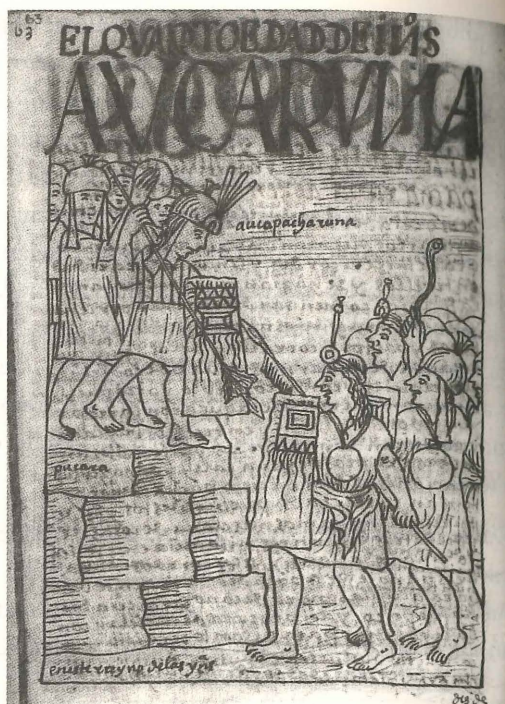 63
63
EL QVARTO EDAD DE INꝰS
AVCARVNA
aucapacharuna
pucara
en este rreyno de las yn̄s